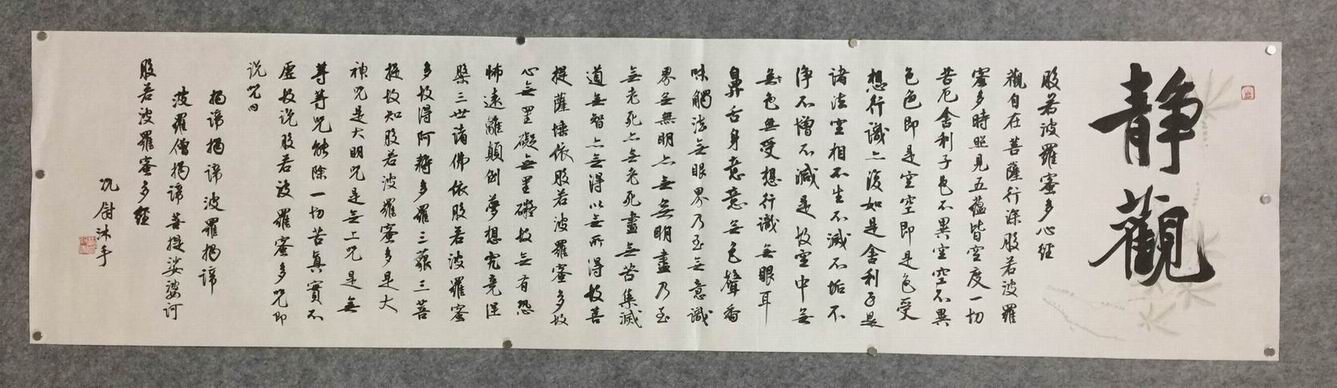 静觀
般若波羅蜜多心經
觀自在菩薩行深般若波羅
蜜多時照見五蘊皆空度一切
苦厄舍利子色不異空空不異
色色即是空空即是色受
想行識亦復如是舍利子是
諸法空相不生不滅不垢不
淨不增不減是故空中無
無色無受想行識無眼耳
鼻舌身意意無色聲香
味觸法無眼界乃至無意識
界無無明亦無無明盡乃至
無老死亦無老死盡無苦集滅
道無智亦無得以無所得故菩
提薩埵依般若波羅蜜多故
心無罣礙無罣礙故無有恐
怖遠離顛倒夢想究竟涅
槃三世諸佛依般若波羅蜜
多故得阿耨多羅三藐三菩
提故知般若波羅蜜多是大
神咒是大明咒是無上咒是無
等等咒能除一切苦真實不
虛故說般若波羅蜜多咒即
說咒曰
揭諦揭諦波羅揭諦
波羅僧揭諦菩提娑婆訶
般若波羅蜜多經
沐手